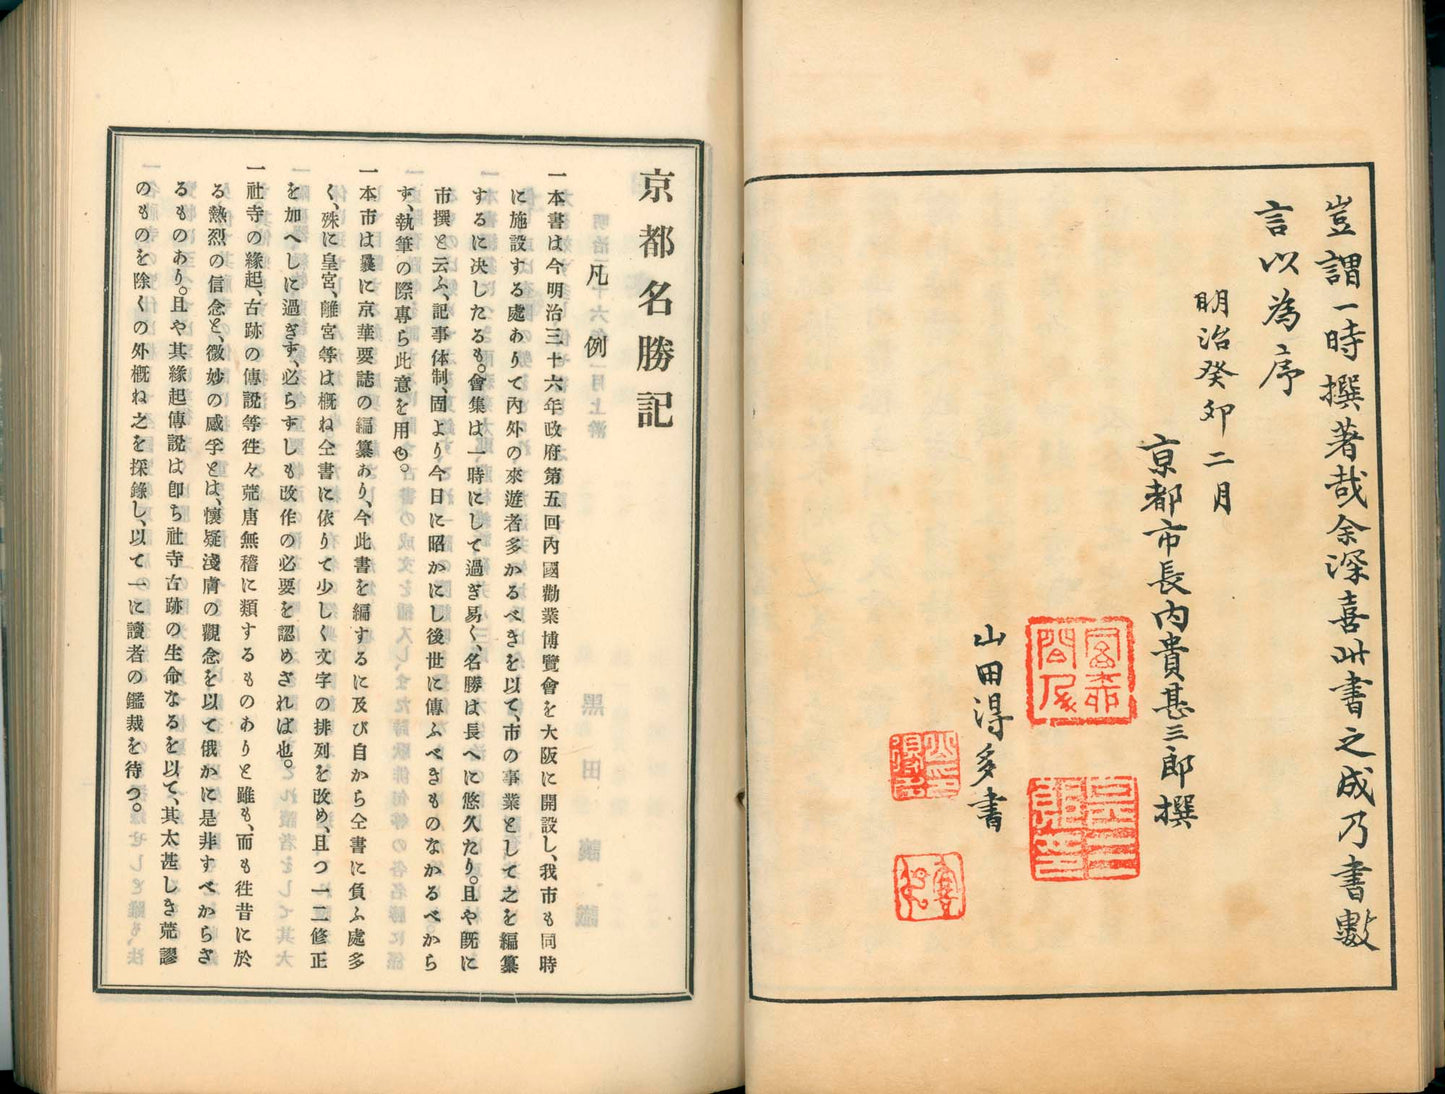 豈謂一時撰著哉余深喜此書之成乃書數
言以為序
明治癸卯二月
京都市長内貴甚三郎撰
山田得多書
京都名勝記
凡例
一本書は今明治三十六年政府第五回內國勸業博覽會を大阪に開設し、我市も同時
に施設する處ありて內外の來遊者多かるべきを以て、市の事業として之を編纂
するに决したるも。會集は一時にして過ぎ易く、名勝は長へに悠久たり。且や旣に
市撰と云ふ、記事体制、固より今日に昭かにし後世に傳ふべきものなかるべから
ず、執筆の際專ら此意を用も。
一本市は曩に京華要誌の編纂あり、今此書を編するに及び自から仝書に負ふ處多
く、殊に皇宮、離宮等は概ね仝書に依りて少しく文字の排列を改め、且つ一二修正
を加へしに過ぎず、必らずしも改作の必要を認めざれば也。
一社寺の緣起、古跡の傳說等徃々荒唐無稽に類するものありと雖も、而も徃昔に於
る熱烈の信念と、微妙の感孚とは、懷疑淺膚の觀念を以て俄かに是非すべからざ
るものあり。且や其緣起傳說は卽ち社寺古跡の生命なるを以て、其太甚しき荒謬
のものを除くの外概ね之を採錄し、以て一に讀者の鑑裁を待つ。